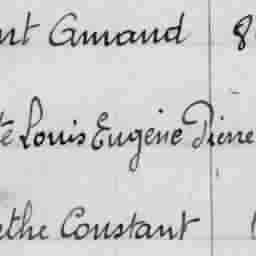 nt Amand 8
té Louis Eugène Pierre
ethe Constant